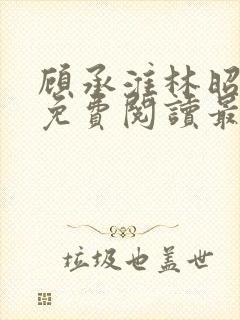 顾承淮林昭
免費閱讀最
垃圾也盖世